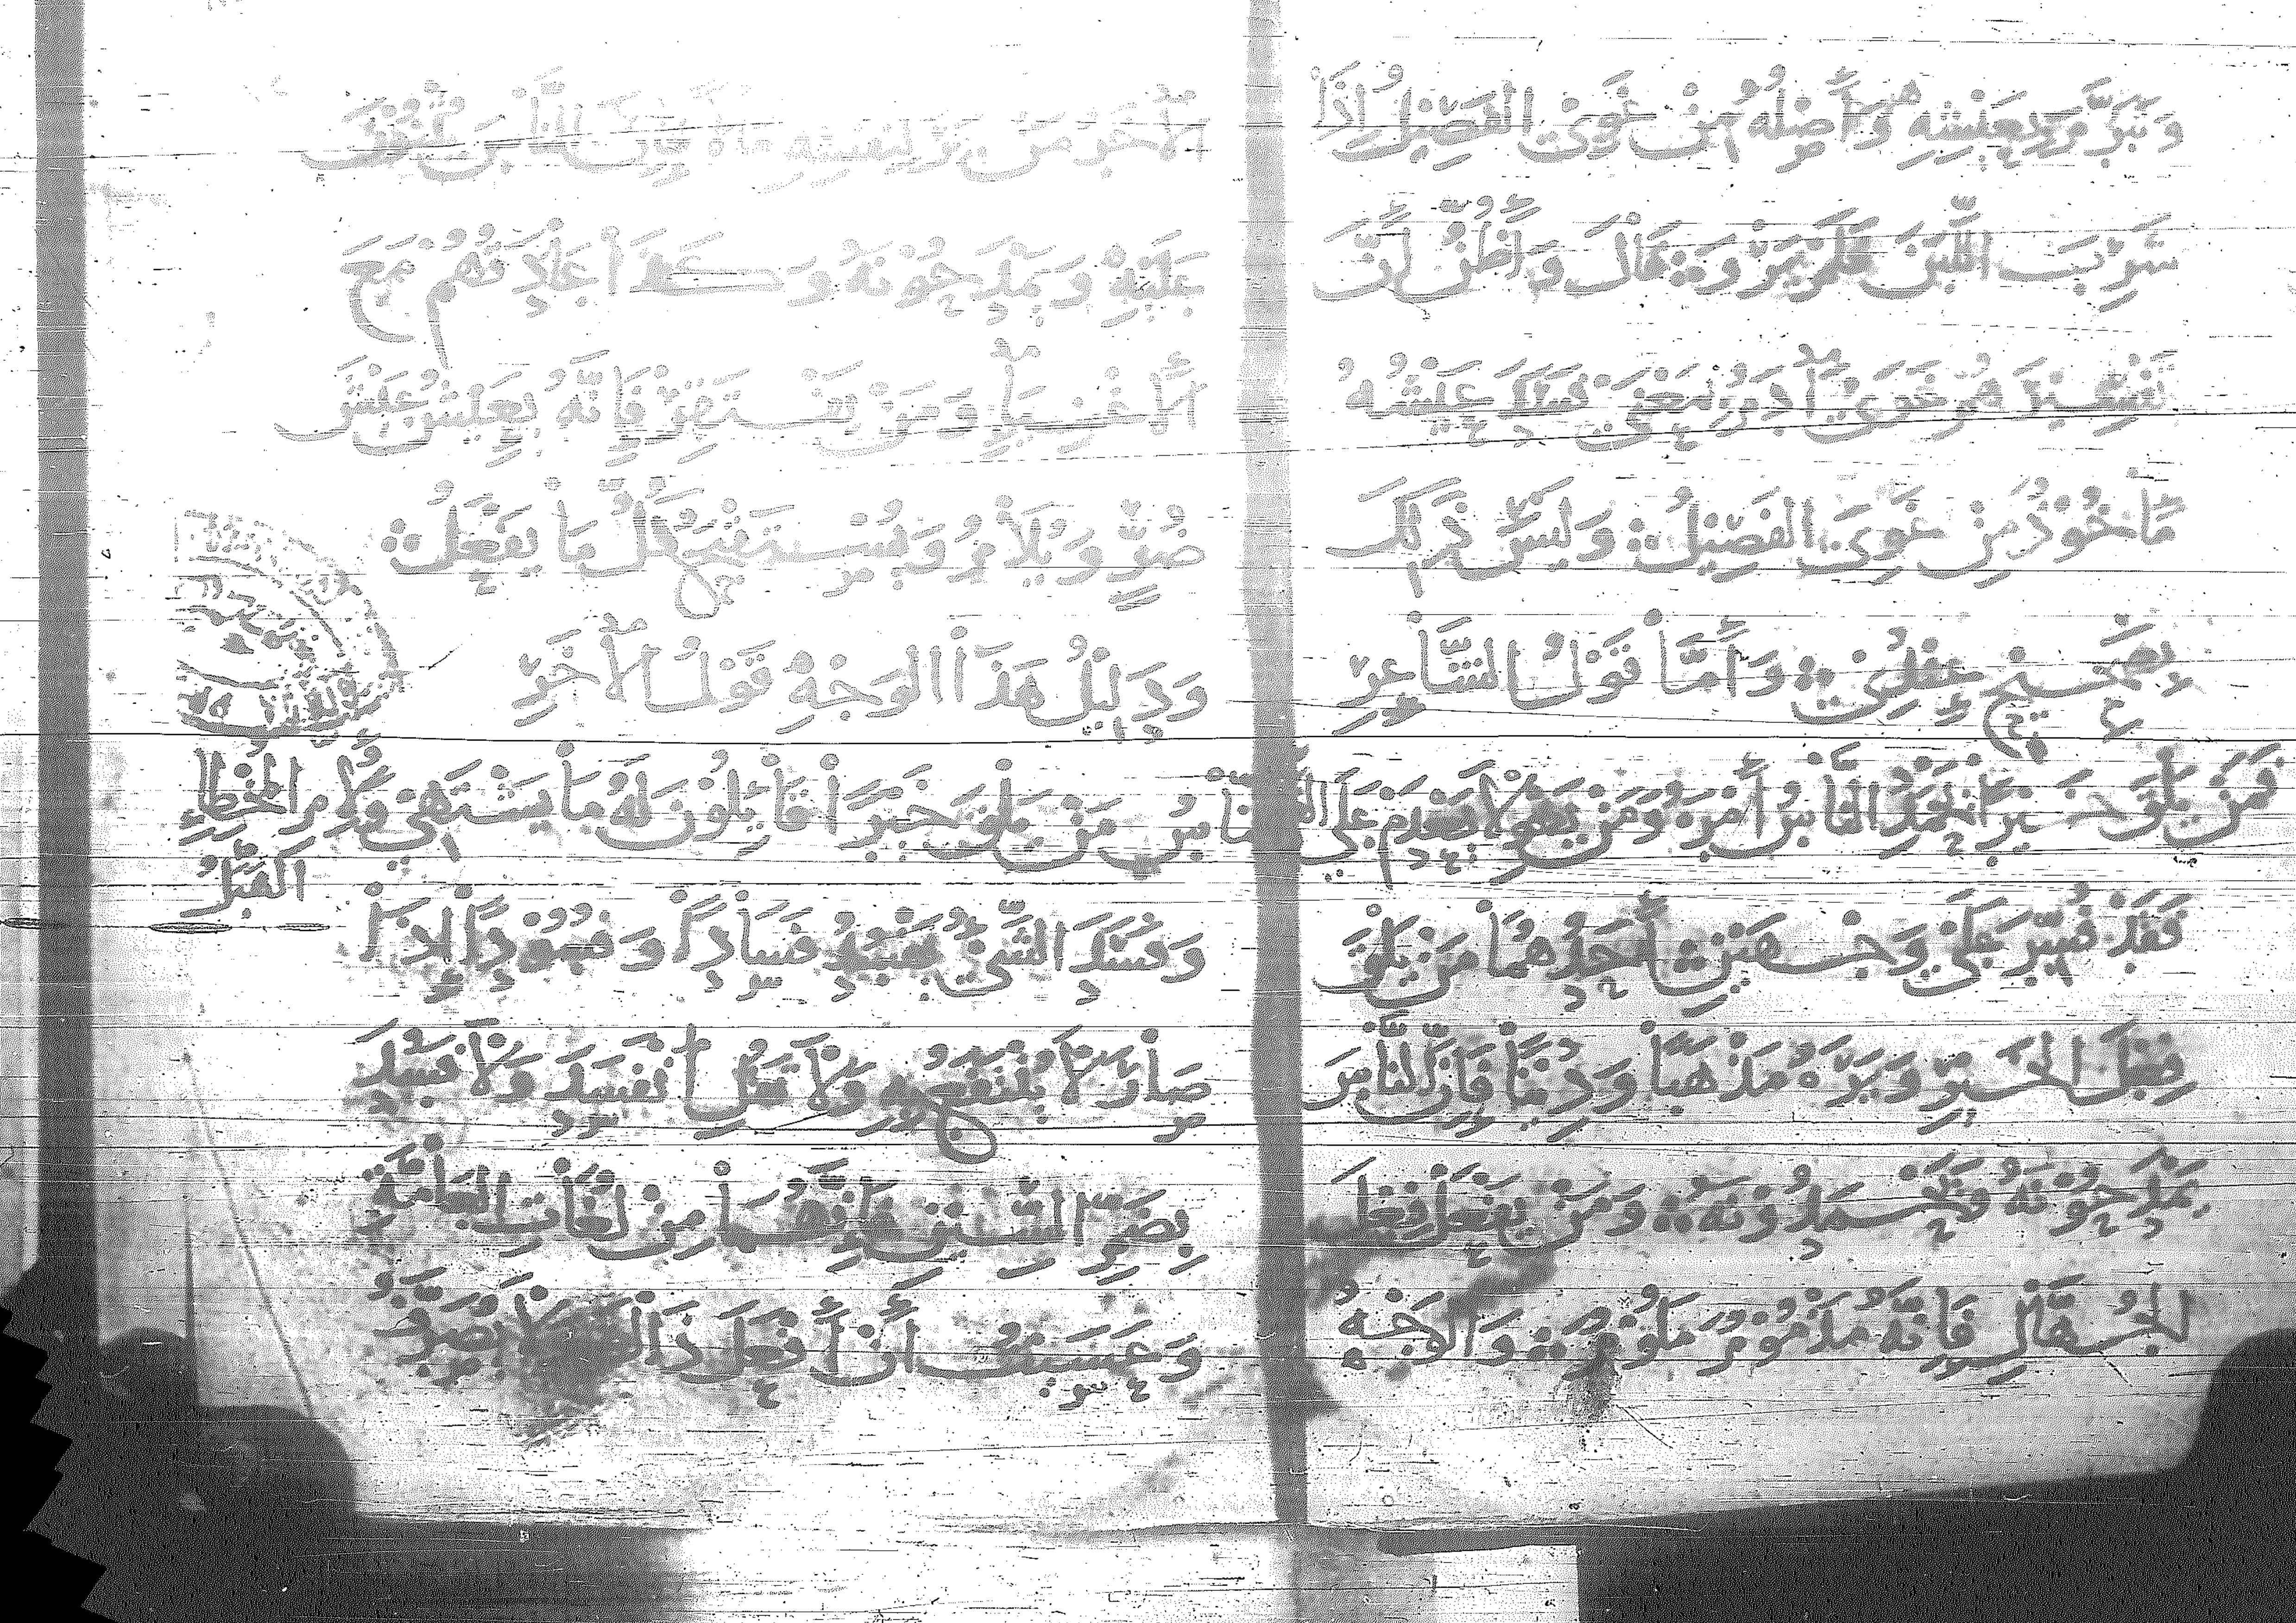 وَتَبَرَّمَ بِعَيْشِهِ وَأَصْلُهُ مِنْ غَوِيَ الفَصِيْلُ إِذَا
شَرِبَ اللَّبَنَ فَلَمْ يَرْوَ ۞ قَالَ وَأَظُنُّ أَنَّ
تَفْسِيْرَهُمْ غَوَى آدَمُ بِمَعْنَى فَسَدَ عَيْشُهُ
مَأْخُوْذٌ مِنْ غَوِيَ الفَصِيْلُ ۞ وَلَيْسَ ذَلِكَ
بِصَحِيْحٍ عِنْدِيْ ۞ وَأَمَّا قَوْلُ الشَّاعِرِ
فَمَنْ يَلْقَ خَيْراً يَحْمَدِ النَّاسُ أَمْرَهُ وَمَنْ يَغْوِ لَا يَعْدَمْ عَلَى
فَقَدْ فُسِّرَ عَلَى وَجْهَيْنِ ۞ أَحَدُهُمَا مَنْ يَلْقَ
فِعْلَ الخَيْرِ وَيَرَاهُ مَذْهَباً وَدِيْناً فَإِنَّ النَّاسَ
يَمْدَحُوْنَهُ وَيَحْمَدُوْنَهُ ۞ وَمَنْ يَفْعَلْ فِعْلَ
الجُهَّالِ فَإِنَّهُ مَذْمُوْمٌ مَلُوْمٌ ۞ وَالوَجْهُ
الآخَرُ مَنْ لِنَفْسِهِ مَالاً فَإِنَّ النَّاسَ
عَلَيْهِ وَيَمْدَحُوْنَهُ وَكَذَا عَادَتُهُمْ مَعَ
الأَغْنِيَاءِ وَمَنْ يَفْتَقِرْ فَإِنَّهُ يَعِيْشُ عَيْشَ
ضُرٍّ وَيُلَامُ وَيُسْتَقْبَحُ كُلُّ مَا يَفْعَلُ ۞
وَدَلِيْلُ هَذَا الوَجْهِ قَوْلُ الآخَرِ
النَّاسُ مَنْ يَلْقَ خَيْراً قَائِلُوْنَ لَهُ مَا يَشْتَهِيْ وَلِأُمِّ المُخْطِئِ
الهَبَلُ
وَفَسَدَ الشَّيْءُ يَفْسُدُ فَسَاداً وَفُسُوْداً إِذَا
صَارَ لَا يُنْتَفَعُ بِهِ وَلَا تَقُلِ انْفَسَدَ وَلَا فَسُدَ
بِضَمِّ السِّيْنِ فَإِنَّهُمَا مِنْ لُغَاتِ العَامَّةِ
وَعَسَيْتُ أَنْ أَفْعَلَ ذَاكَ